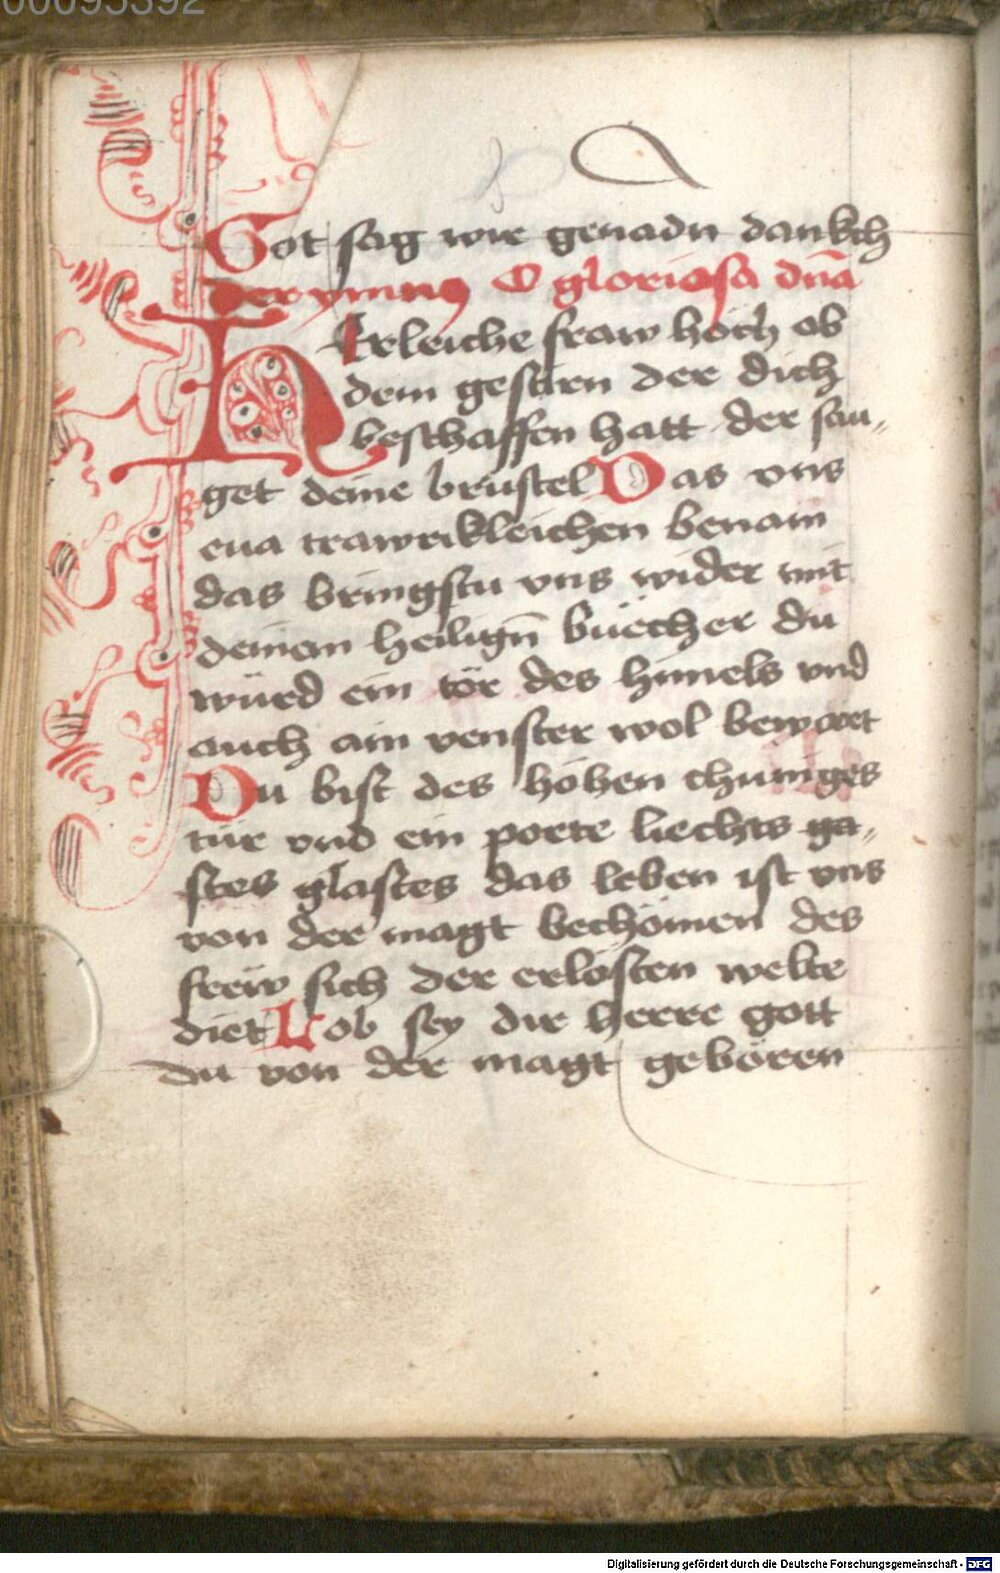 00095392
Got sag wir genadn dankch
Der ymnus O gloriosa dña
HErleiche fraw hoch ob
dem gestirn der dich
beschaffen hatt der sau„
get deine brüstel Das vns
eua trawrikleichen benam
das bringstu vns wider mit
deinem heilign̄ büecher du
würd ein tör des himels vnd
auch ain venster wol bewart
Du bist des höhen chuniges
tür vnd ein porte liechts ga„
stes glastes das leben ist vns
von der magt bechömen des
frew sich der erlösten welte
diet Lob sey dir herre gott
du von der magt gebören
Digitalisierung gefördert durch die Deutsche Forschungsgemeinschaft - DFG